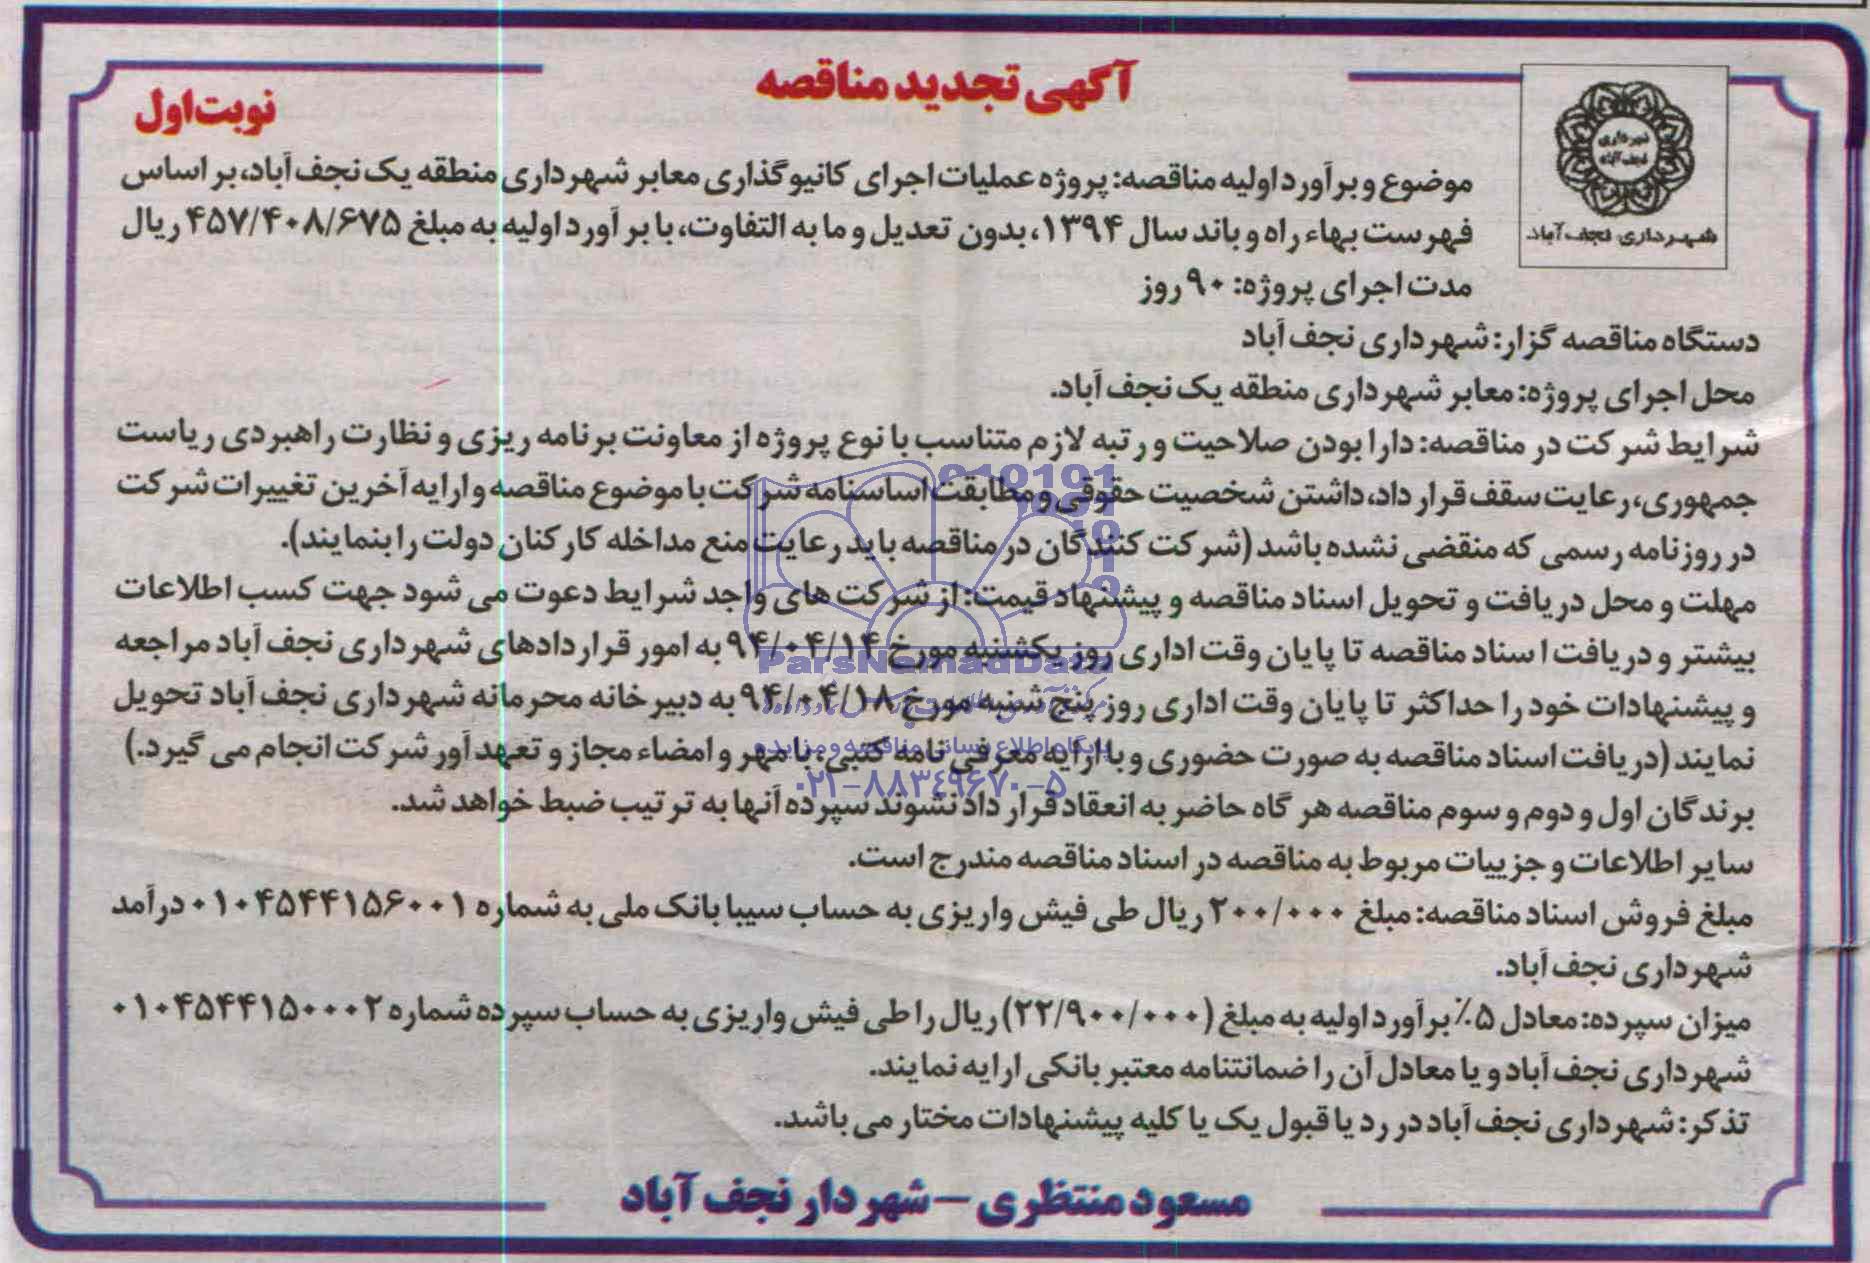 آگهی تجدید مناقصه
نوبت اول
شهرداری نجف آباد
شهرداری نجف آباد
موضوع و برآورد اولیه مناقصه: پروژه عملیات اجرای کانیوگذاری معابر شهرداری منطقه یک نجف آباد، بر اساس
فهرست بهاء راه و باند سال ۱۳۹۴، بدون تعدیل و ما به التفاوت، با برآورد اولیه به مبلغ ۴۵۷/۴۰۸/۶۷۵ ریال
مدت اجرای پروژه: ۹۰ روز
دستگاه مناقصه گزار: شهرداری نجف آباد
محل اجرای پروژه: معابر شهرداری منطقه یک نجف آباد.
شرایط شرکت در مناقصه: دارا بودن صلاحیت و رتبه لازم متناسب با نوع پروژه از معاونت برنامه ریزی و نظارت راهبردی ریاست
جمهوری، رعایت سقف قرار داد، داشتن شخصیت حقوقی و مطابقت اساسنامه شرکت با موضوع مناقصه و ارایه آخرین تغییرات شرکت
در روزنامه رسمی که منقضی نشده باشد (شرکت کنندگان در مناقصه باید رعایت منع مداخله کارکنان دولت را بنمایند).
مهلت و محل دریافت و تحویل اسناد مناقصه و پیشنهاد قیمت: از شرکت های واجد شرایط دعوت می شود جهت کسب اطلاعات
بیشتر و دریافت اسناد مناقصه تا پایان وقت اداری روز یکشنبه مورخ ۹۴/۰۴/۱۴ به امور قراردادهای شهرداری نجف آباد مراجعه
و پیشنهادات خود را حداکثر تا پایان وقت اداری روز پنج شنبه مورخ ۹۴/۰۴/۱۸ به دبیرخانه محرمانه شهرداری نجف آباد تحویل
نمایند (دریافت اسناد مناقصه به صورت حضوری و با ارایه معرفی نامه کتبی، با مهر و امضاء مجاز و تعهد آور شرکت انجام می گیرد.)
برندگان اول و دوم و سوم مناقصه هر گاه حاضر به انعقاد قرار داد نشوند سپرده آنها به ترتیب ضبط خواهد شد.
سایر اطلاعات و جزییات مربوط به مناقصه در اسناد مناقصه مندرج است.
مبلغ فروش اسناد مناقصه: مبلغ ۲۰۰/۰۰۰ ریال طی فیش واریزی به حساب سیبا بانک ملی به شماره ۰۱۰۴۵۴۴۱۵۶۰۰۱ درآمد
شهرداری نجف آباد.
میزان سپرده: معادل ۵٪ برآورد اولیه به مبلغ (۲۲/۹۰۰/۰۰۰) ریال را طی فیش واریزی به حساب سپرده شماره ۰۱۰۴۵۴۴۱۵۰۰۰۲
شهرداری نجف آباد و یا معادل آن را ضمانتنامه معتبر بانکی ارایه نمایند.
تذکر: شهرداری نجف آباد در رد یا قبول یک یا کلیه پیشنهادات مختار می باشد.
مسعود منتظری – شهردار نجف آباد
ParsNamadData
پایگاه اطلاع رسانی مناقصه و مزایده
۰۲۱-۸۸۳۴۹۶۷۰-۵